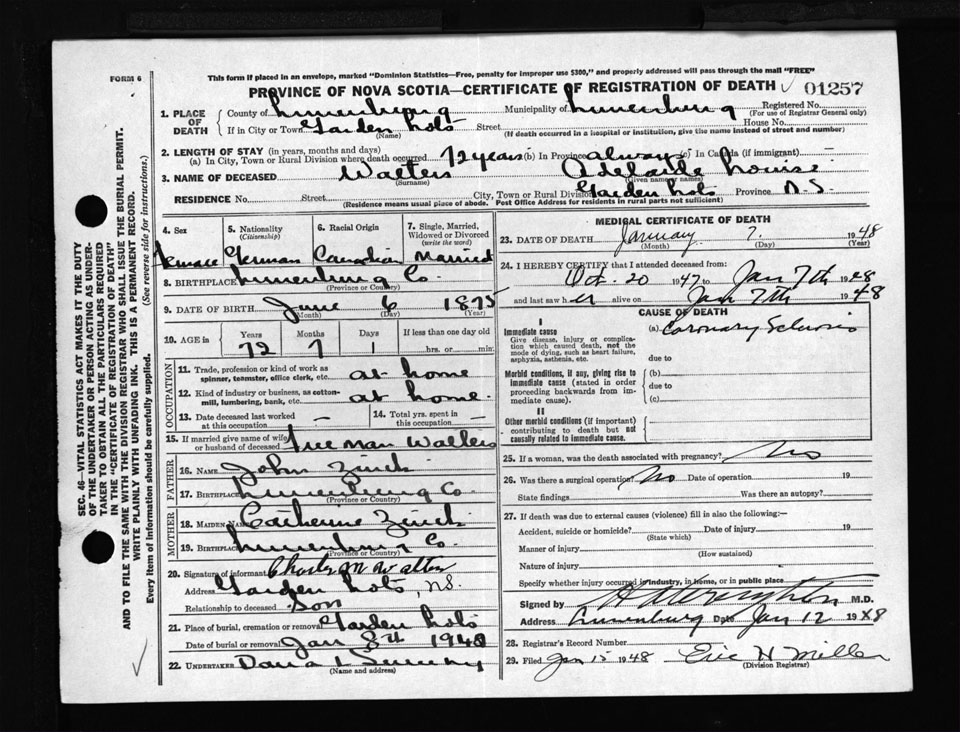 FORM 6
This form if placed in an envelope, marked "Dominion Statistics—Free, penalty for improper use $300," and properly addressed will pass through the mail "FREE"
PROVINCE OF NOVA SCOTIA—CERTIFICATE OF REGISTRATION OF DEATH 01257
1. PLACE OF DEATH County of Lunenburg Municipality of Lunenburg Registered No.
(For use of Registrar General only)
If in City or Town Garden Lots Street House No.
(Name) (If death occurred in a hospital or institution, give the name instead of street and number)
2. LENGTH OF STAY (in years, months and days)
(a) In City, Town or Rural Division where death occurred 72 years (b) In Province always (c) In Canada (if immigrant) —
3. NAME OF DECEASED Walters Adelaide Louise
(Surname) (Given name or names)
RESIDENCE No. Street City, Town or Rural Division Garden Lots Province N.S.
(Residence means usual place of abode. Post Office Address for residents in rural parts not sufficient)
4. Sex 5. Nationality (Citizenship) 6. Racial Origin 7. Single, Married, Widowed or Divorced (write the word)
Female German Canadian Married
8. BIRTHPLACE Lunenburg Co.
(Province or Country)
9. DATE OF BIRTH June 6 1875
(Month) (Day) (Year)
10. AGE in Years Months Days If less than one day old
72 7 1 hrs. or min.
OCCUPATION
11. Trade, profession or kind of work as spinner, teamster, office clerk, etc. at home
12. Kind of industry or business, as cotton-mill, lumbering, bank, etc. at home.
13. Date deceased last worked at this occupation — 14. Total yrs. spent in this occupation —
15. If married give name of wife or husband of deceased Freeman Walters
FATHER
16. NAME John Zinck
17. BIRTHPLACE Lunenburg Co.
(Province or Country)
MOTHER
18. MAIDEN NAME Catherine Zinck
19. BIRTHPLACE Lunenburg Co.
(Province or Country)
20. Signature of informant Charles M Walters
Address Garden Lots, N.S.
Relationship to deceased Son
21. Place of burial, cremation or removal Garden Lots
Date of burial or removal Jan 8th 1948
22. UNDERTAKER Dana L Sweeny
(Name and address)
MEDICAL CERTIFICATE OF DEATH
23. DATE OF DEATH January 7. 1948
(Month) (Day) (Year)
24. I HEREBY CERTIFY that I attended deceased from:
Oct. 20 1947 to Jan 7th 1948
and last saw her alive on Jan 7th 1948
CAUSE OF DEATH
I
Immediate cause (a) Coronary Sclerosis
Give disease, injury or complication which caused death, not the mode of dying, such as heart failure, asphyxia, asthenia, etc.
due to
Morbid conditions, if any, giving rise to immediate cause (stated in order proceeding backwards from immediate cause). (b)
due to
(c)
II
Other morbid conditions (if important) contributing to death but not causally related to immediate cause.
25. If a woman, was the death associated with pregnancy? No
26. Was there a surgical operation? No Date of operation 19
State findings Was there an autopsy?
27. If death was due to external causes (violence) fill in also the following:—
Accident, suicide or homicide? Date of injury 19
(State which)
Manner of injury
(How sustained)
Nature of injury
Specify whether injury occurred in industry, in home, or in public place
Signed by M.D.
Address Lunenburg Date Jan 12 1948
28. Registrar's Record Number
29. Filed Jan 15 1948 Eric H Miller
(Division Registrar)
SEC. 46—VITAL STATISTICS ACT MAKES IT THE DUTY
OF THE UNDERTAKER OR PERSON ACTING AS UNDER-
TAKER TO OBTAIN ALL THE PARTICULARS REQUIRED
IN THE "CERTIFICATE OF REGISTRATION OF DEATH"
AND TO FILE THE SAME WITH THE DIVISION REGISTRAR WHO SHALL ISSUE THE BURIAL PERMIT.
WRITE PLAINLY WITH UNFADING INK. THIS IS A PERMANENT RECORD.
Every item of information should be carefully supplied. (See reverse side for instructions.)